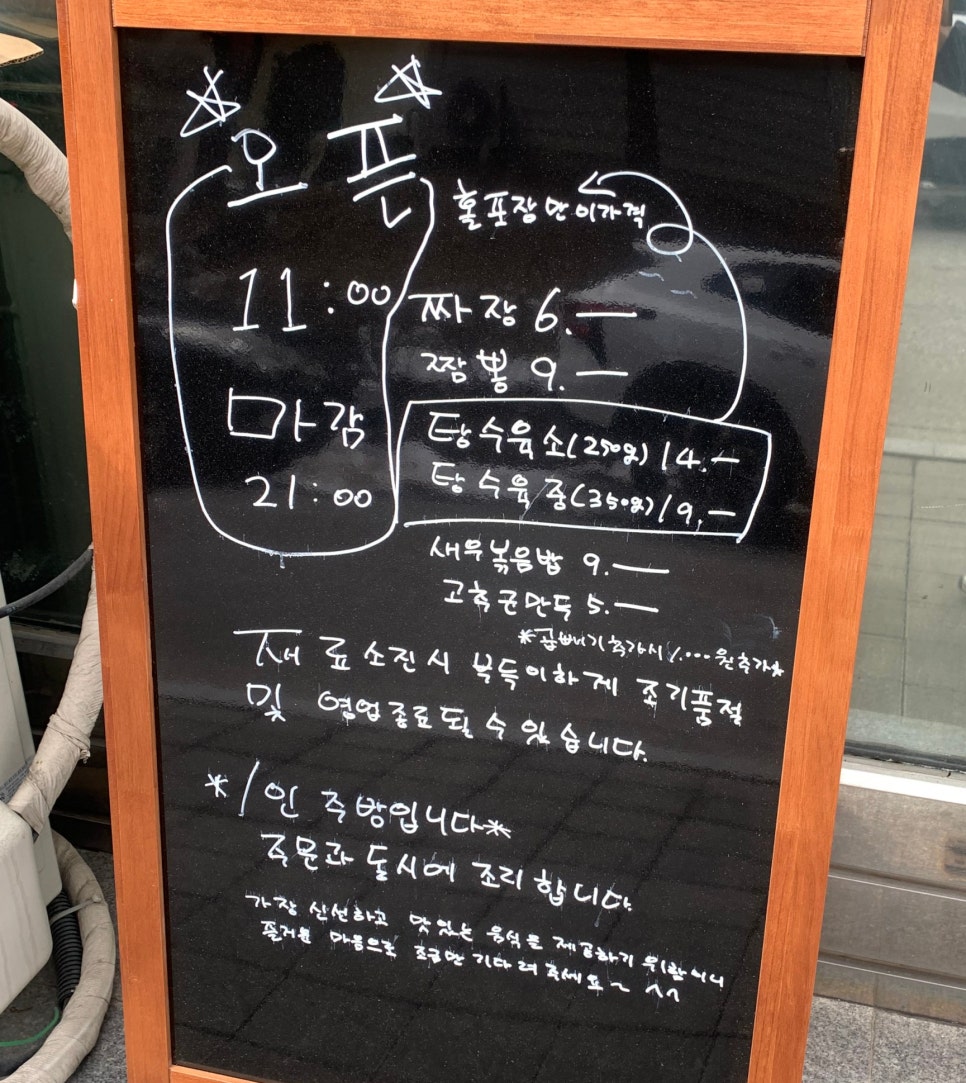 오픈
11:00
마감
21:00
홀포장만이가격
짜장 6.—
짬뽕 9.—
탕수육소(250g) 14.—
탕수육중(350g) 19.—
새우볶음밥 9.—
고추군만두 5.—
*곱빼기추가시 1.... 원추가*
재료소진시 부득이하게 조기품절
및 영업종료될 수 있습니다.
*1인 주방입니다*
주문과 동시에 조리합니다.
가장 신선하고 맛있는 음식을 제공하기 위함이니
즐거운 마음으로 조금만 기다려주세요~ ^^